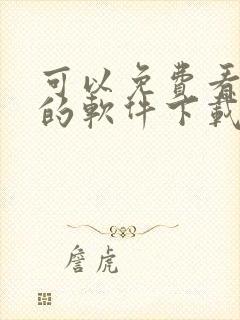 可以免费看
的软件下载
詹虎